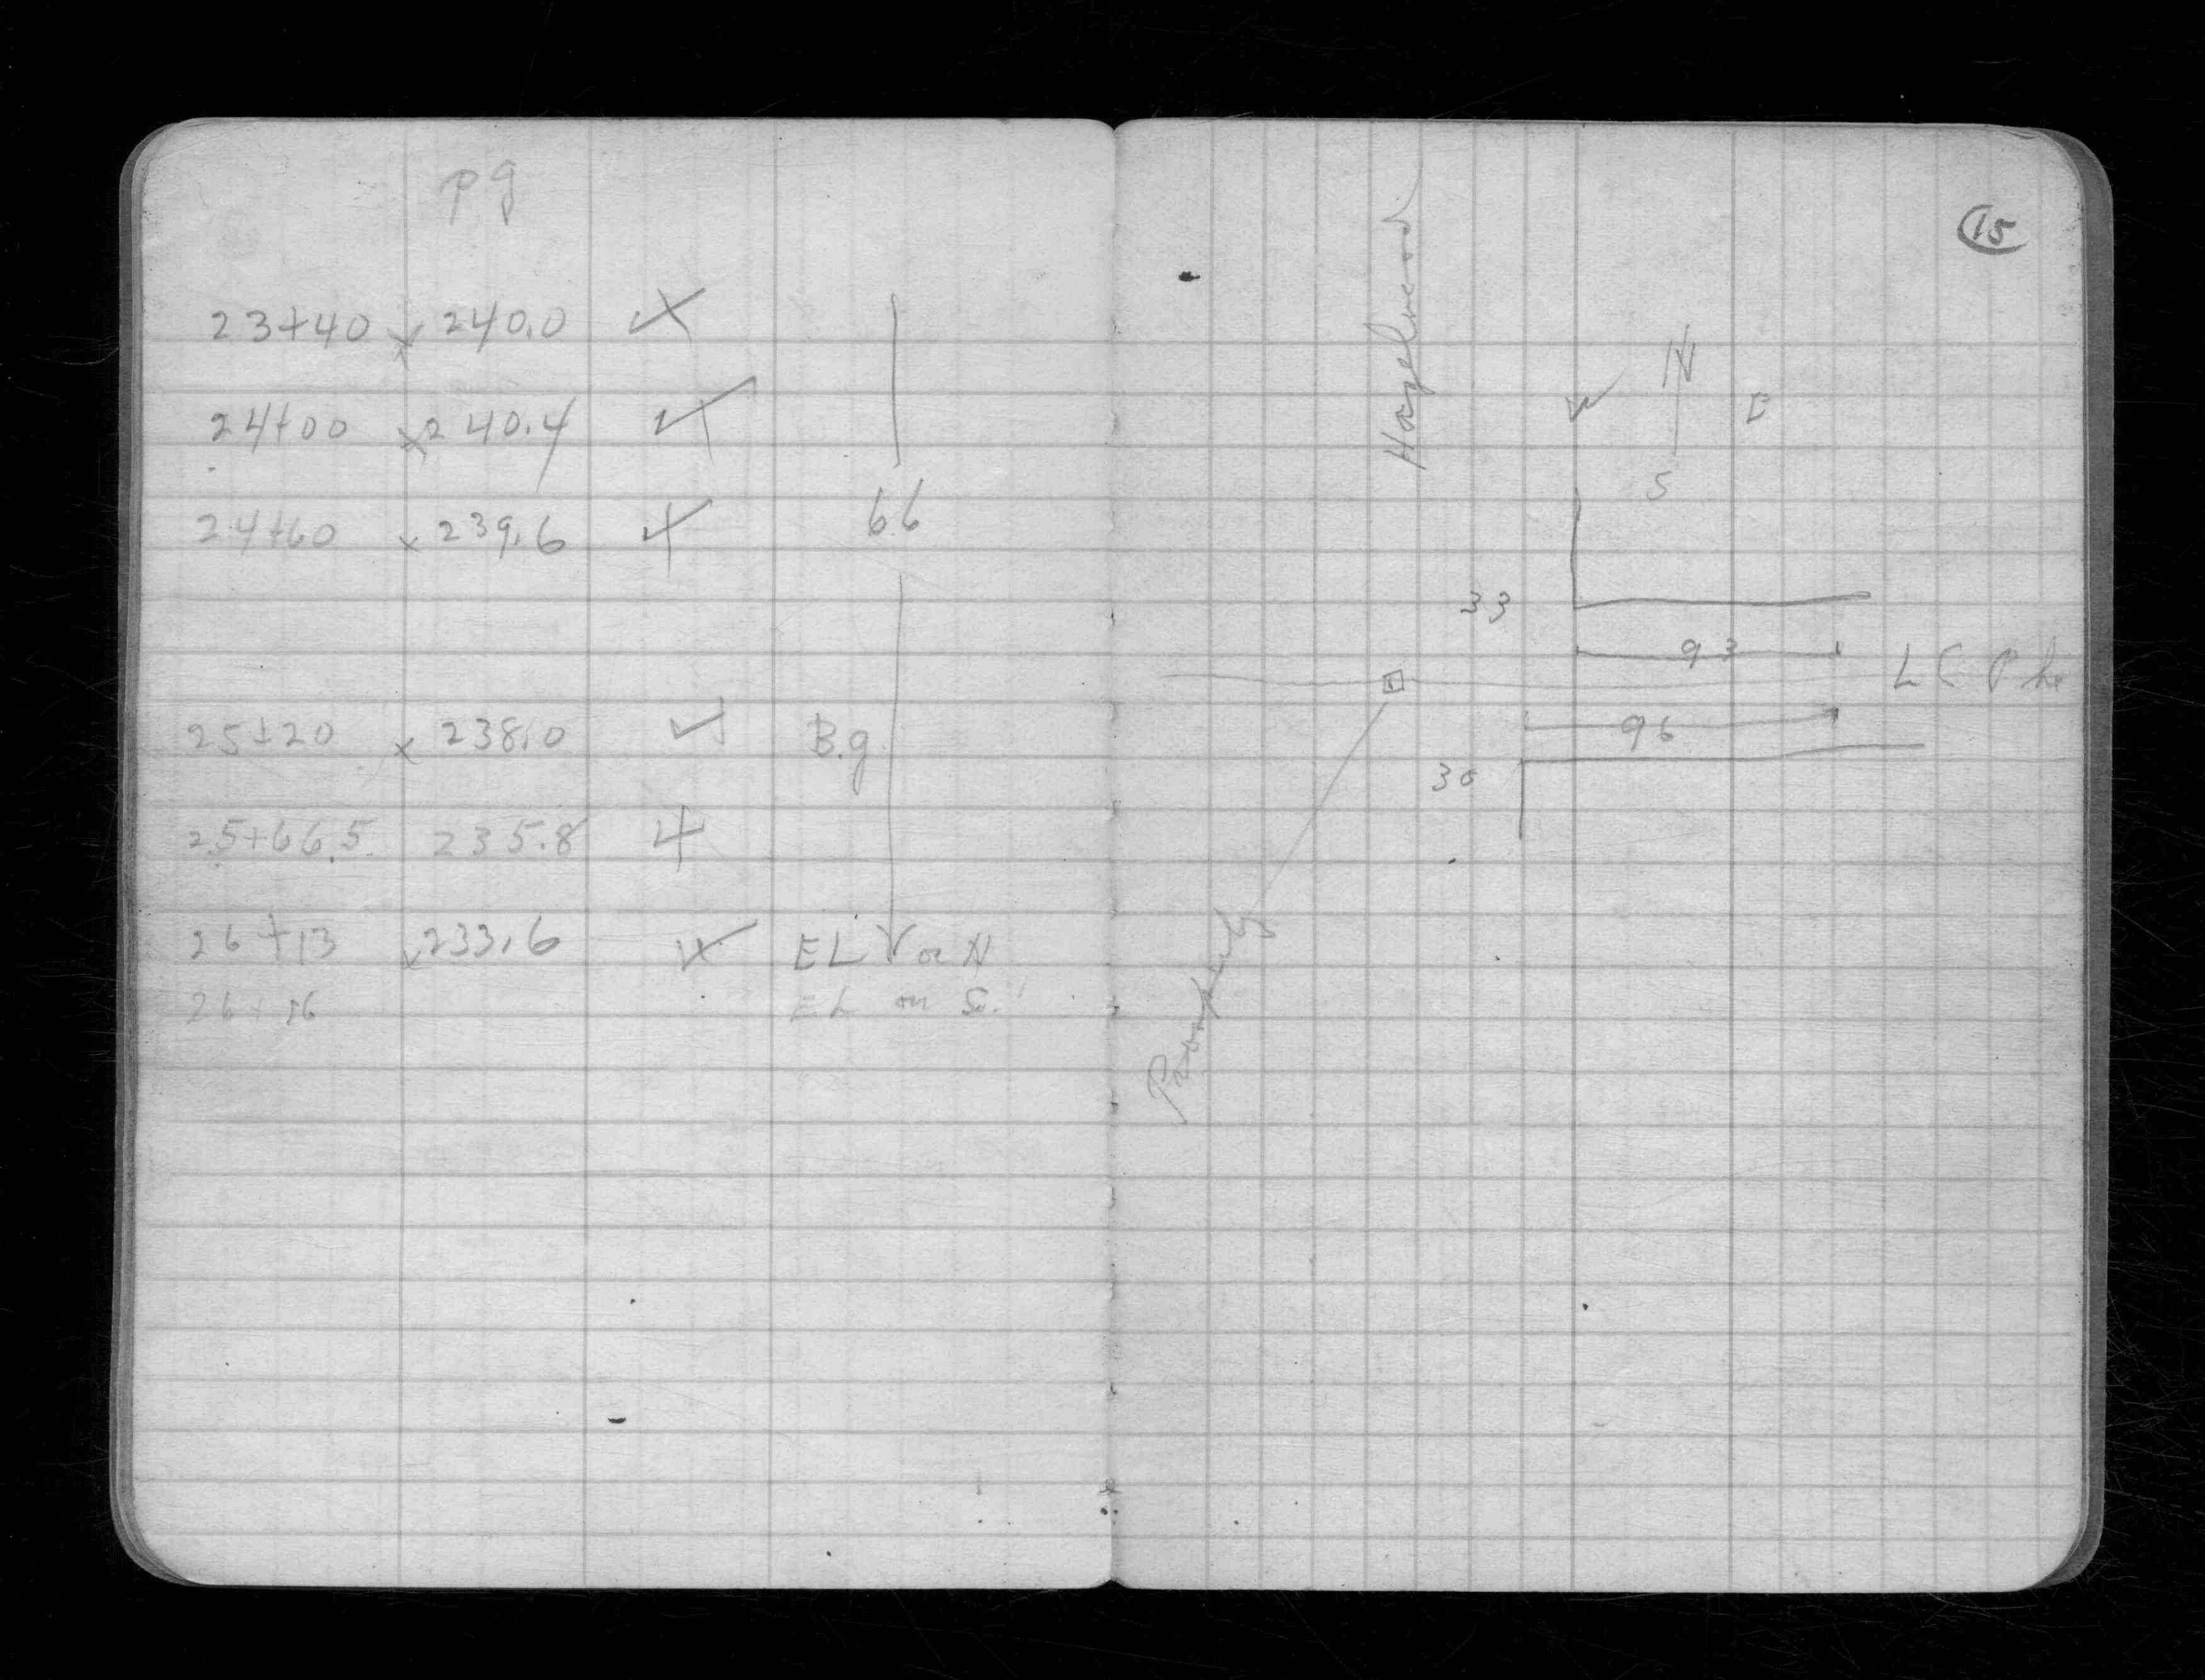 pg
23+40 x 240.0
24+00 x 240.4
24+60 x 239.6 66
25+20 x 238.0 B.g
25+66.5 235.8
26+13 x 233.6 EL on N
26+16 EL on S.
15
Hazelwood
N
W E
S
33
93
96
30